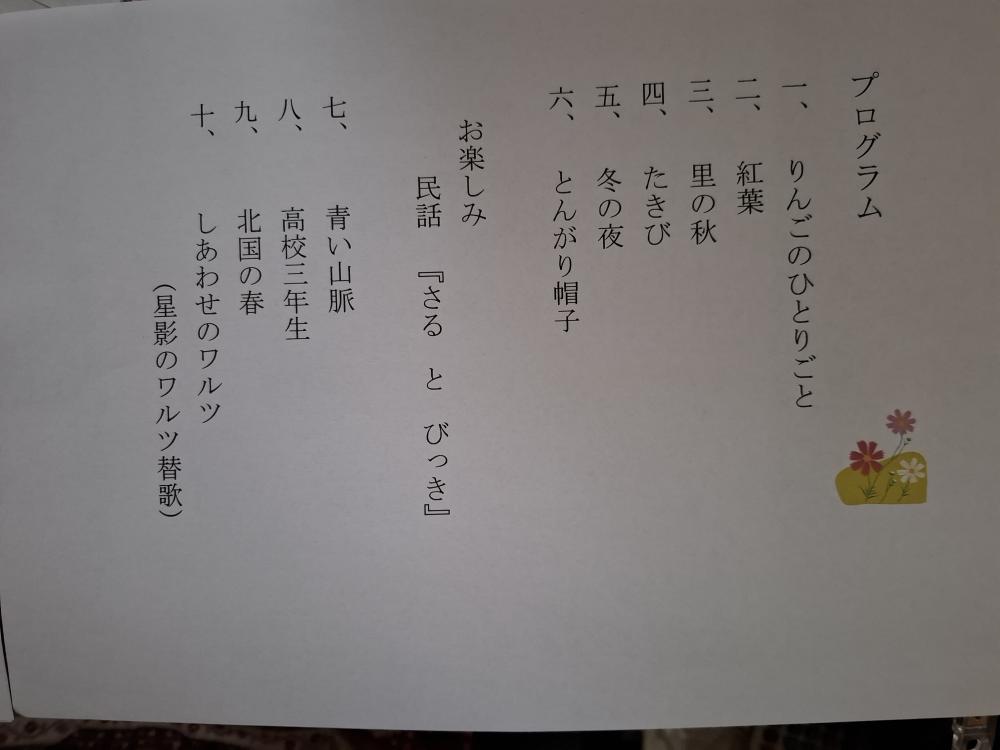 プログラム
一、 りんごのひとりごと
二、 紅葉
三、 里の秋
四、 たきび
五、 冬の夜
六、 とんがり帽子
お楽しみ
民話 『さる と びっき』
七、 青い山脈
八、 高校三年生
九、 北国の春
十、 しあわせのワルツ
(星影のワルツ替歌)